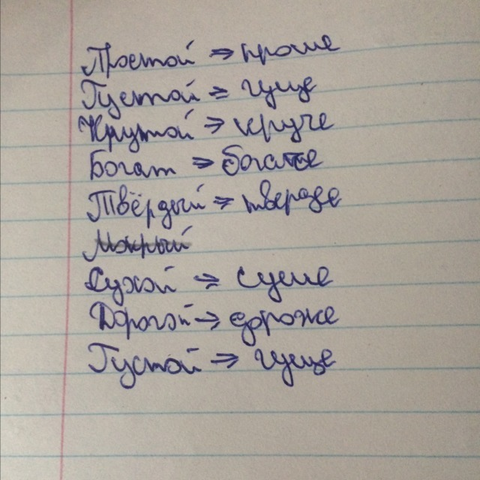 Простой => проше
Густой => гуще
Крутой => круче
Богат => богатее
Твёрдый => тверде
Мокрый
Сухой => суше
Дорогой => дороже
Густой => гуще